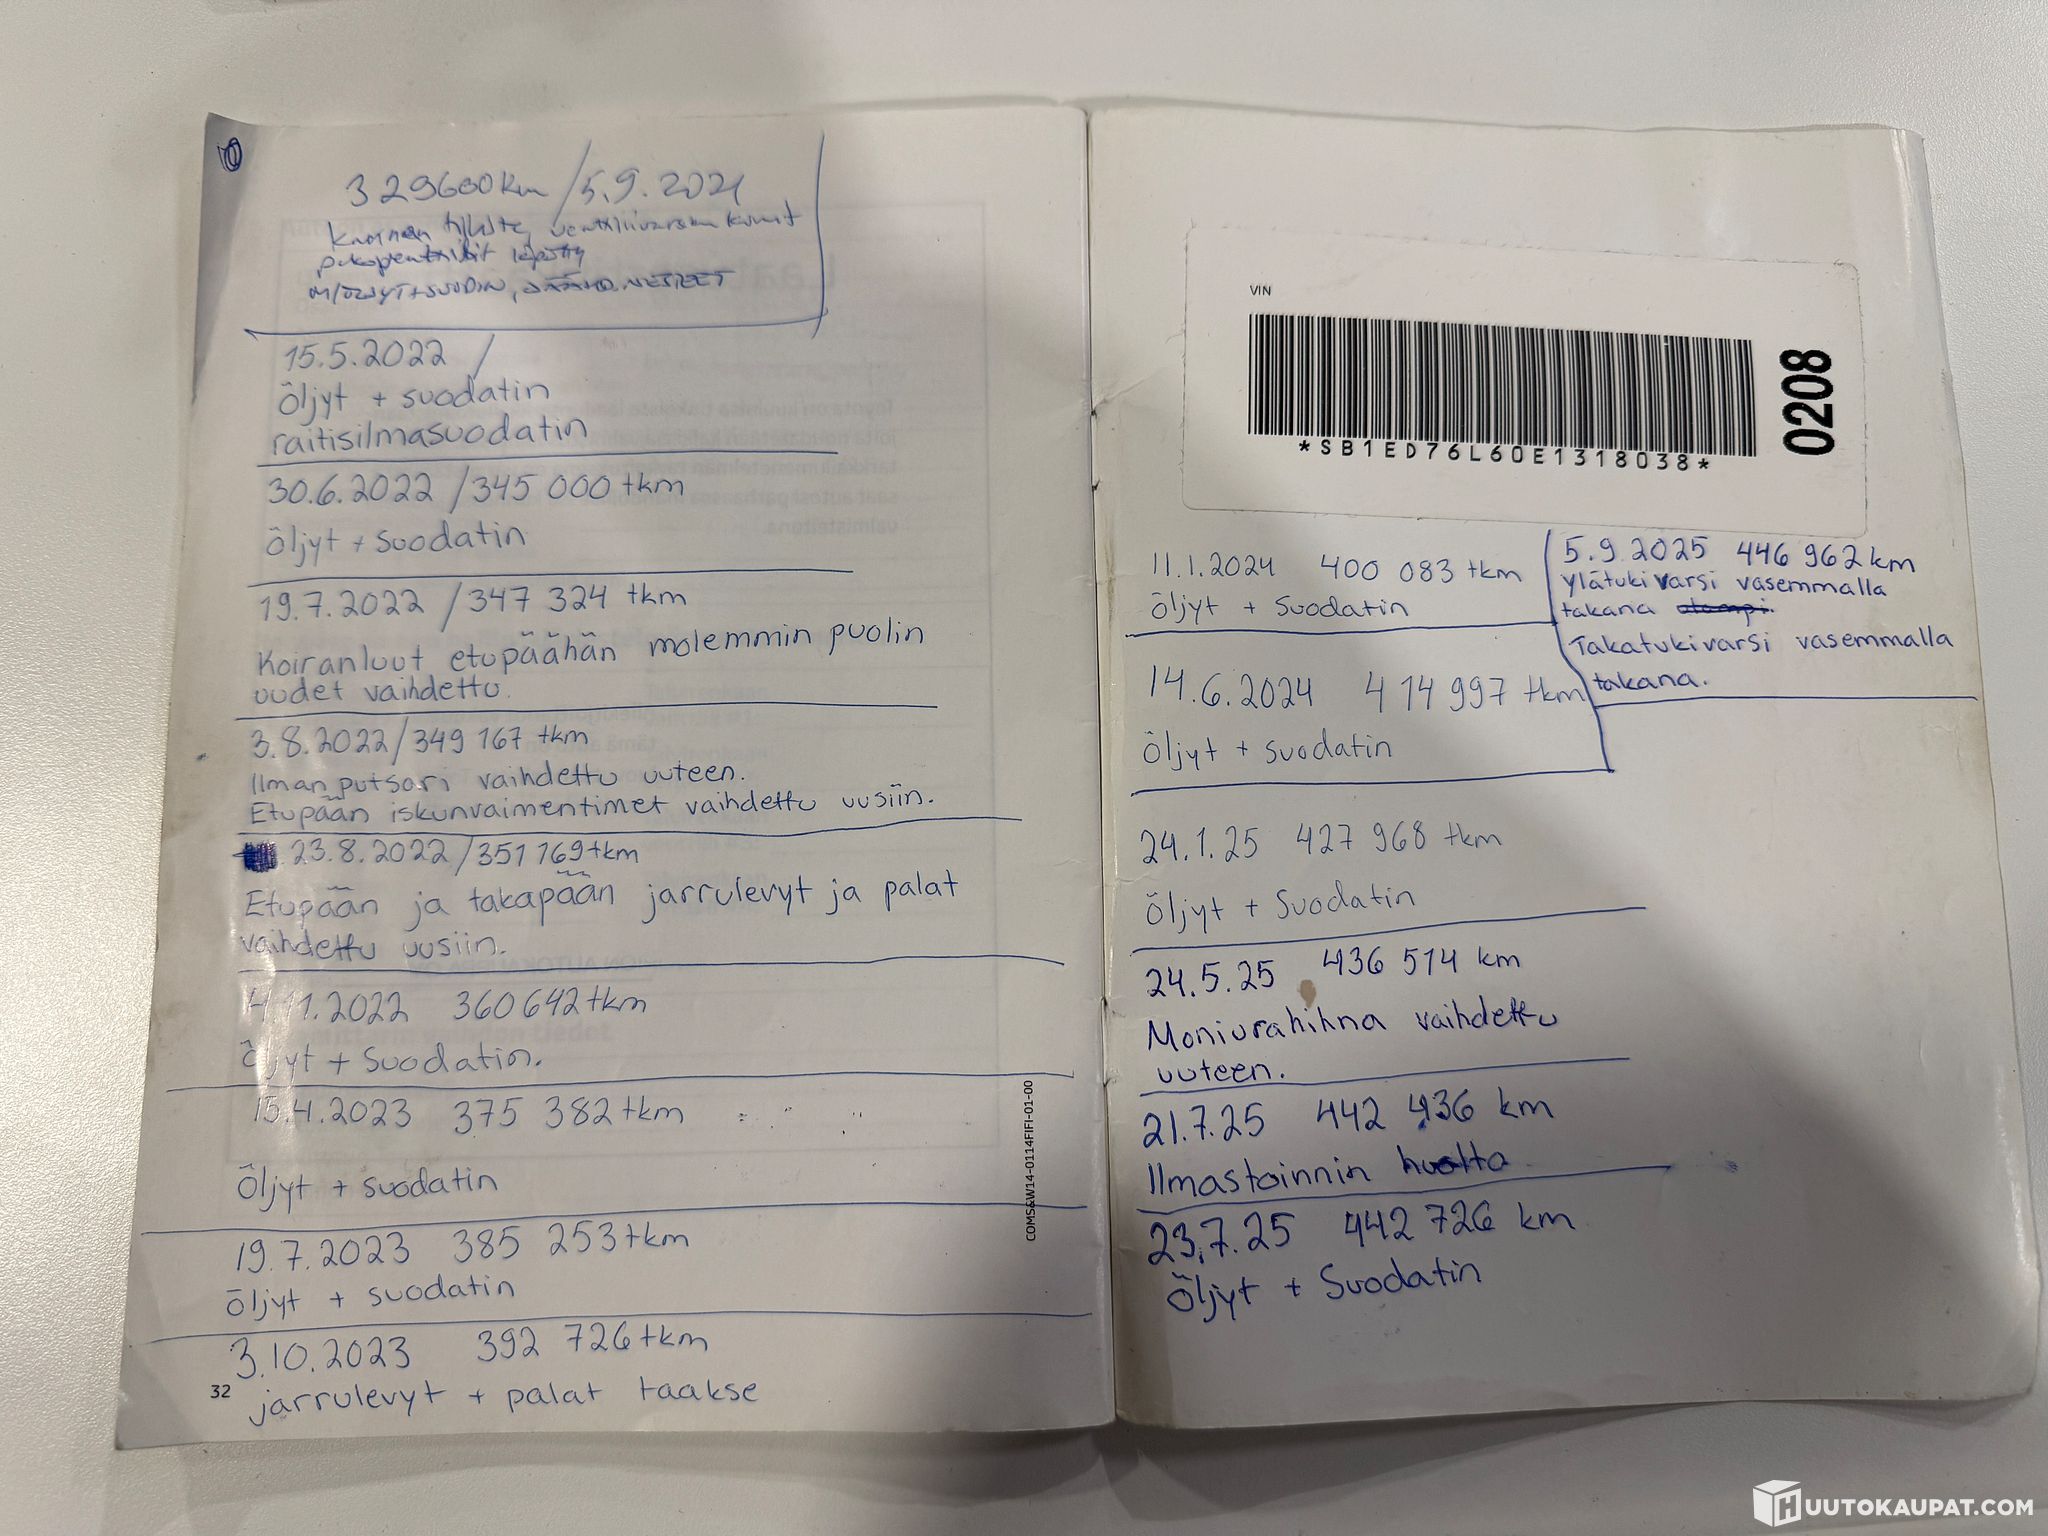 329600km / 5.9.2021
M/ÖLJYT+SUODIN, JÄÄHD.NESTEET
15.5.2022 /
Öljyt + suodatin
raitisilmasuodatin
30.6.2022 / 345 000 tkm
Öljyt + suodatin
19.7.2022 / 347 324 tkm
Koiranluut etupäähän molemmin puolin
uudet vaihdettu.
3.8.2022 / 349 167 tkm
Ilmanputsari vaihdettu uuteen.
Etupään iskunvaimentimet vaihdettu uusiin.
23.8.2022 / 351 769 tkm
Etupään ja takapään jarrulevyt ja palat
vaihdettu uusiin.
4.11.2022 360 642 tkm
Öljyt + Suodatin.
15.4.2023 375 382 tkm
Öljyt + suodatin
19.7.2023 385 253 tkm
Öljyt + suodatin
3.10.2023 392 726 tkm
jarrulevyt + palat taakse
32
COMS&W14-0114FIFI-01-00
VIN
*SB1ED76L60E1318038*
0208
11.1.2024 400 083 tkm
Öljyt + Suodatin
14.6.2024 414 997 tkm
Öljyt + suodatin
5.9.2025 446 962 km
Ylätukivarsi vasemmalla
takana
Takatukivarsi vasemmalla
takana.
24.1.25 427 968 tkm
Öljyt + Suodatin
24.5.25 436 514 km
Moniurahihna vaihdettu
uuteen.
21.7.25 442 436 km
Ilmastoinnin huolto
23.7.25 442 726 km
Öljyt + Suodatin
HUUTOKAUPAT.COM